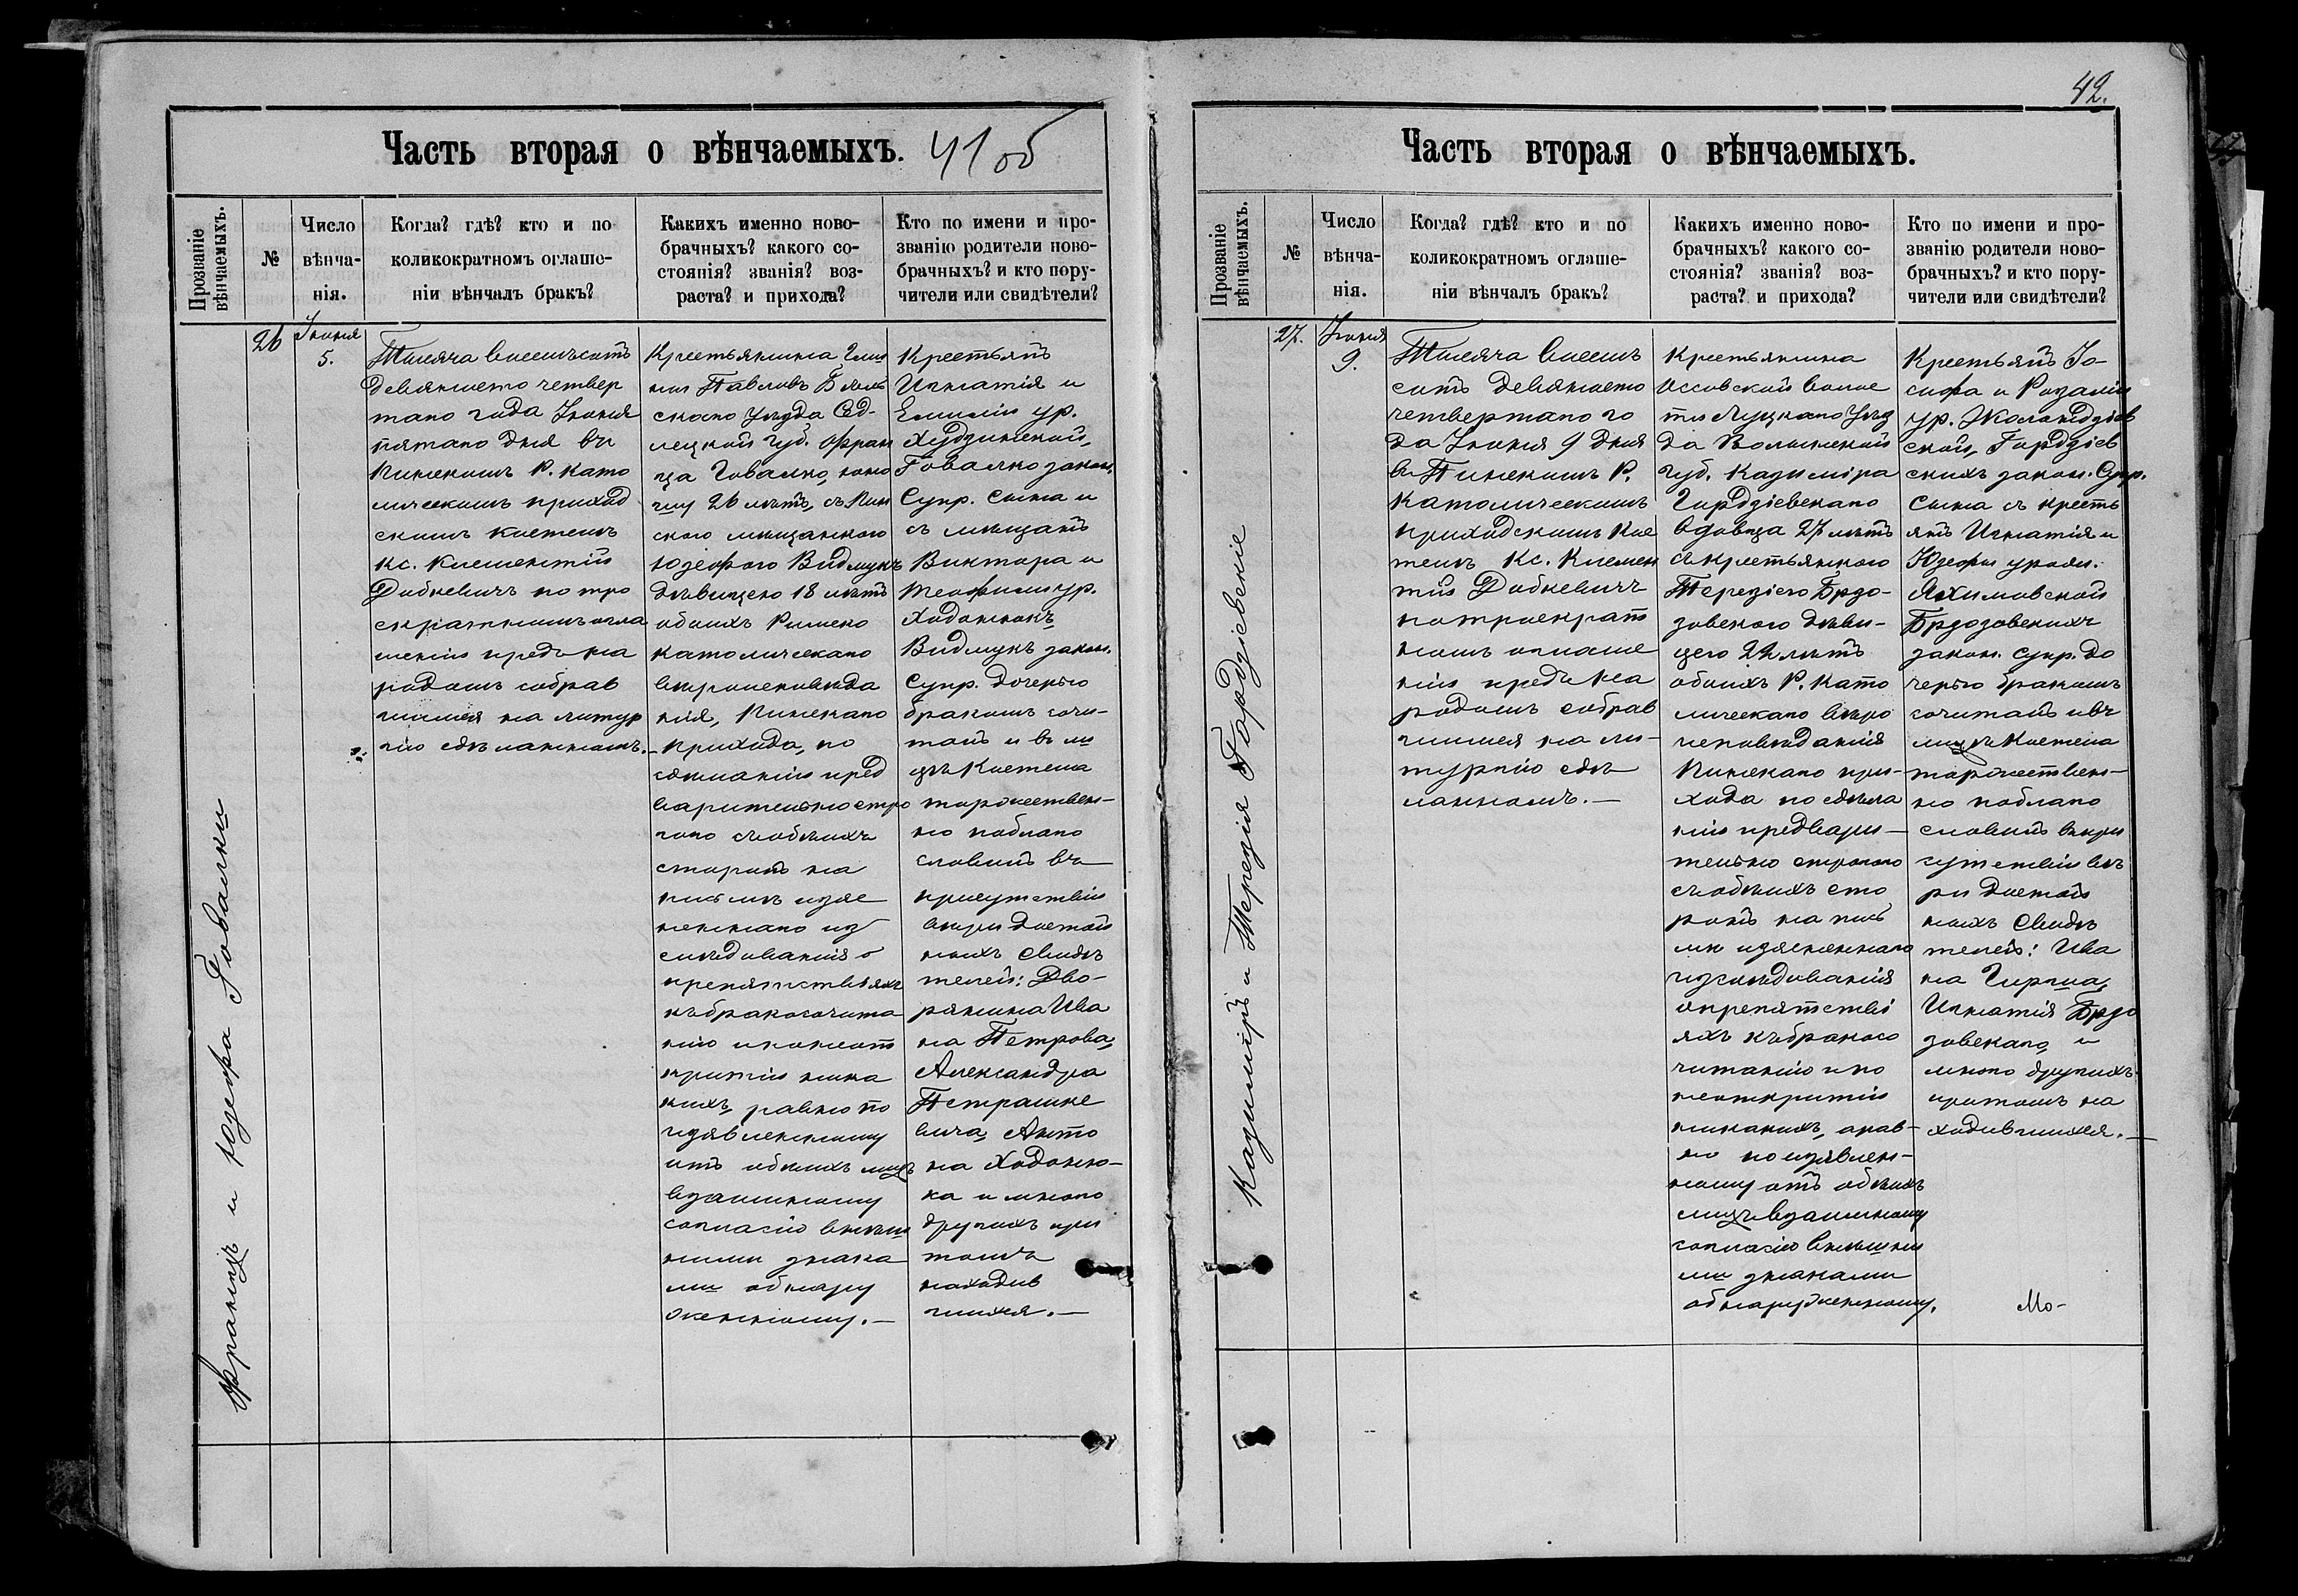 42.
Часть вторая о вѣнчаемыхъ. 41 об
Прозваніе вѣнчаемыхъ.
№
Число
вѣнча-
нія.
Когда? гдѣ? кто и по
коликократномъ оглаше-
ніи вѣнчалъ бракъ?
Какихъ именно ново-
брачныхъ? какого со-
стоянія? званія? воз-
раста? и прихода?
Кто по имени и про-
званію родители ново-
брачныхъ? и кто пору-
чители или свидѣтели?
Францъ и Юзефа Говалки
26
Іюня
5.
Тысяча восемьсотъ
девяносто четвер
таго года Іюня
пятаго дня въ
Пинскомъ Р. Като
лическомъ приход
скомъ костелѣ
Кс. Клементій
Добкевичъ по тро
екратномъ огла
шеніи предъ на
родомъ собрав
шимся на литур
гію сдѣланномъ.
Крестьянина Гми
ны Павловъ Бяль
скаго уѣзда Сѣд-
лецкой губ. Фран
ца Говалко, юно
шу 26 лѣтъ, съ Пин
скою мѣщанкою
Юзефою Видмукъ
дѣвицею 18 лѣтъ
обоихъ Римско
католическаго
вѣроисповѣда
нія, Пинскаго
прихода, по
сдѣланіи пред
варительно стро
гаго съ обѣихъ
сторонъ на
письмѣ изяс
неннаго из
слѣдованія о
препятствіяхъ
къ бракосочета
нію и по неот
крытіи ника
кихъ, равно по
изявленному
отъ обѣихъ лицъ
взаимному
согласію внѣш
ними знака
ми обнару
женному.—
Крестьянъ
Игнатія и
Емиліи ур.
Худзинской,
Говалко закон.
Супр. Сына и
съ мѣщанъ
Виктора и
Теофили ур.
Ходонюкъ
Видмукъ закон.
Супр. дочерью
бракомъ соче-
талъ и въ ли
цѣ Костела
торжествен-
но поблаго
словилъ въ
присутствіи
вѣри достой
ныхъ свидѣ
телей: Дво-
рянина Ива
на Петрова,
Александра
Петрашке
вича, Анто
на Ходоню-
ка и много
другихъ при
томъ
находив
шихся.—
Часть вторая о вѣнчаемыхъ.
Прозваніе вѣнчаемыхъ.
№
Число
вѣнча-
нія.
Когда? гдѣ? кто и по
коликократномъ оглаше-
ніи вѣнчалъ бракъ?
Какихъ именно ново-
брачныхъ? какого со-
стоянія? званія? воз-
раста? и прихода?
Кто по имени и про-
званію родители ново-
брачныхъ? и кто пору-
чители или свидѣтели?
Казиміръ и Терезія Гордзіевскіе
27.
Іюня
9.
Тысяча восемь
сотъ девяносто
четвертаго го
да Іюня 9 дня
въ Пинскомъ Р.
Католическомъ
приходскомъ Кос
телѣ Кс. Клемен
тій Добкевичъ
по троекрат
номъ оглаше
ніи предъ на
родомъ собрав
шимся на ли-
тургію сдѣ
ланномъ.—
Крестьянина
Оссовской волос
ти Луцкаго уѣз
да Волынской
губ. Казиміра
Гордзіевскаго
вдовца 27 лѣтъ
съ крестьянкою
Терезіею Брзо-
зовскою дѣви-
цею 22 лѣтъ
обоихъ Р. Като
лическаго вѣро
исповѣданія
Пинскаго при-
хода по сдѣла
ніи предвари-
тельно строгаго
съ обѣихъ сто
ронъ на пись
мѣ изясненнаго
изслѣдованія
о препятстві
яхъ къ бракосо
четанію и по
неоткрытіи
никакихъ, а рав-
но по изявлен-
ному отъ обѣихъ
лицъ взаимному
согласію внѣшни
ми знаками
обнаруженному.
Крестьянъ Іо
сифа и Розаліи
ур.
Гордзіев
скихъ закон. Супр.
Сына съ кресть
янъ Игнатія и
Юзефы урож.
Яхимовской
Брзозовскихъ
закон. супр. до
черью бракомъ
сочеталъ и въ
лицѣ Костела
торжествен-
но поблаго
словилъ въ при
сутствіи вѣ
ри достой
ныхъ Свидѣ
телей: Ива
на Гиргла,
Игнатія Брзо
зовскаго, и
много другихъ
притомъ на
ходившихся.—
Мо-